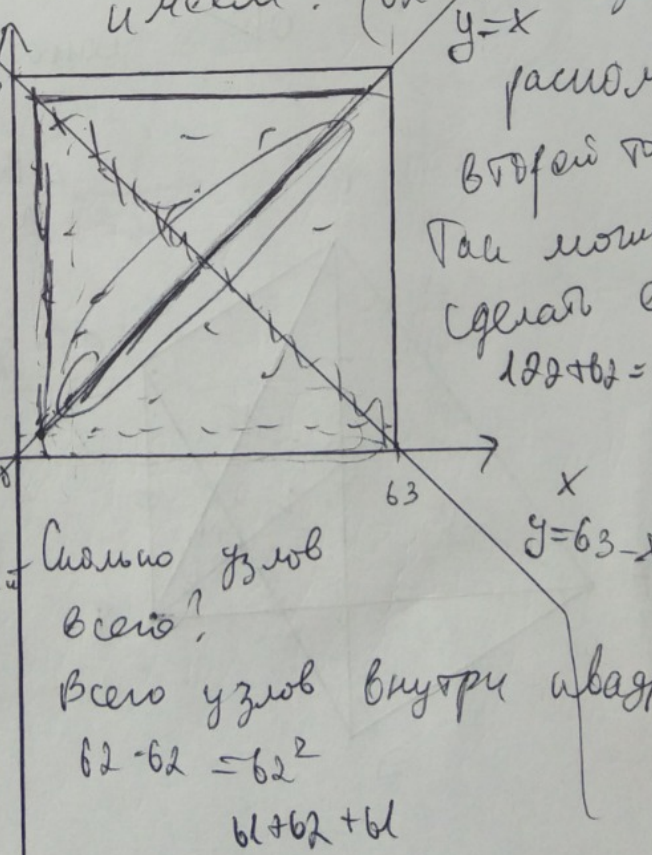 имеем?
y=x
второй
Так
сделать
122+62=
63
x
y=63-x
Сколько узлов
всего?
Всего узлов внутри квадр
62·62 =62²
61+62+61